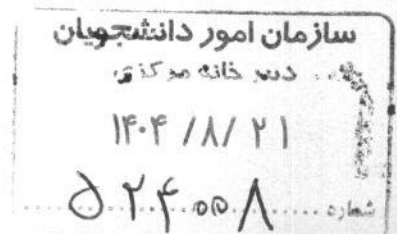 سازمان امور دانشجویان
دبیر خانه مرکزی
۱۴۰۴ /۸/ ۲۱
شماره